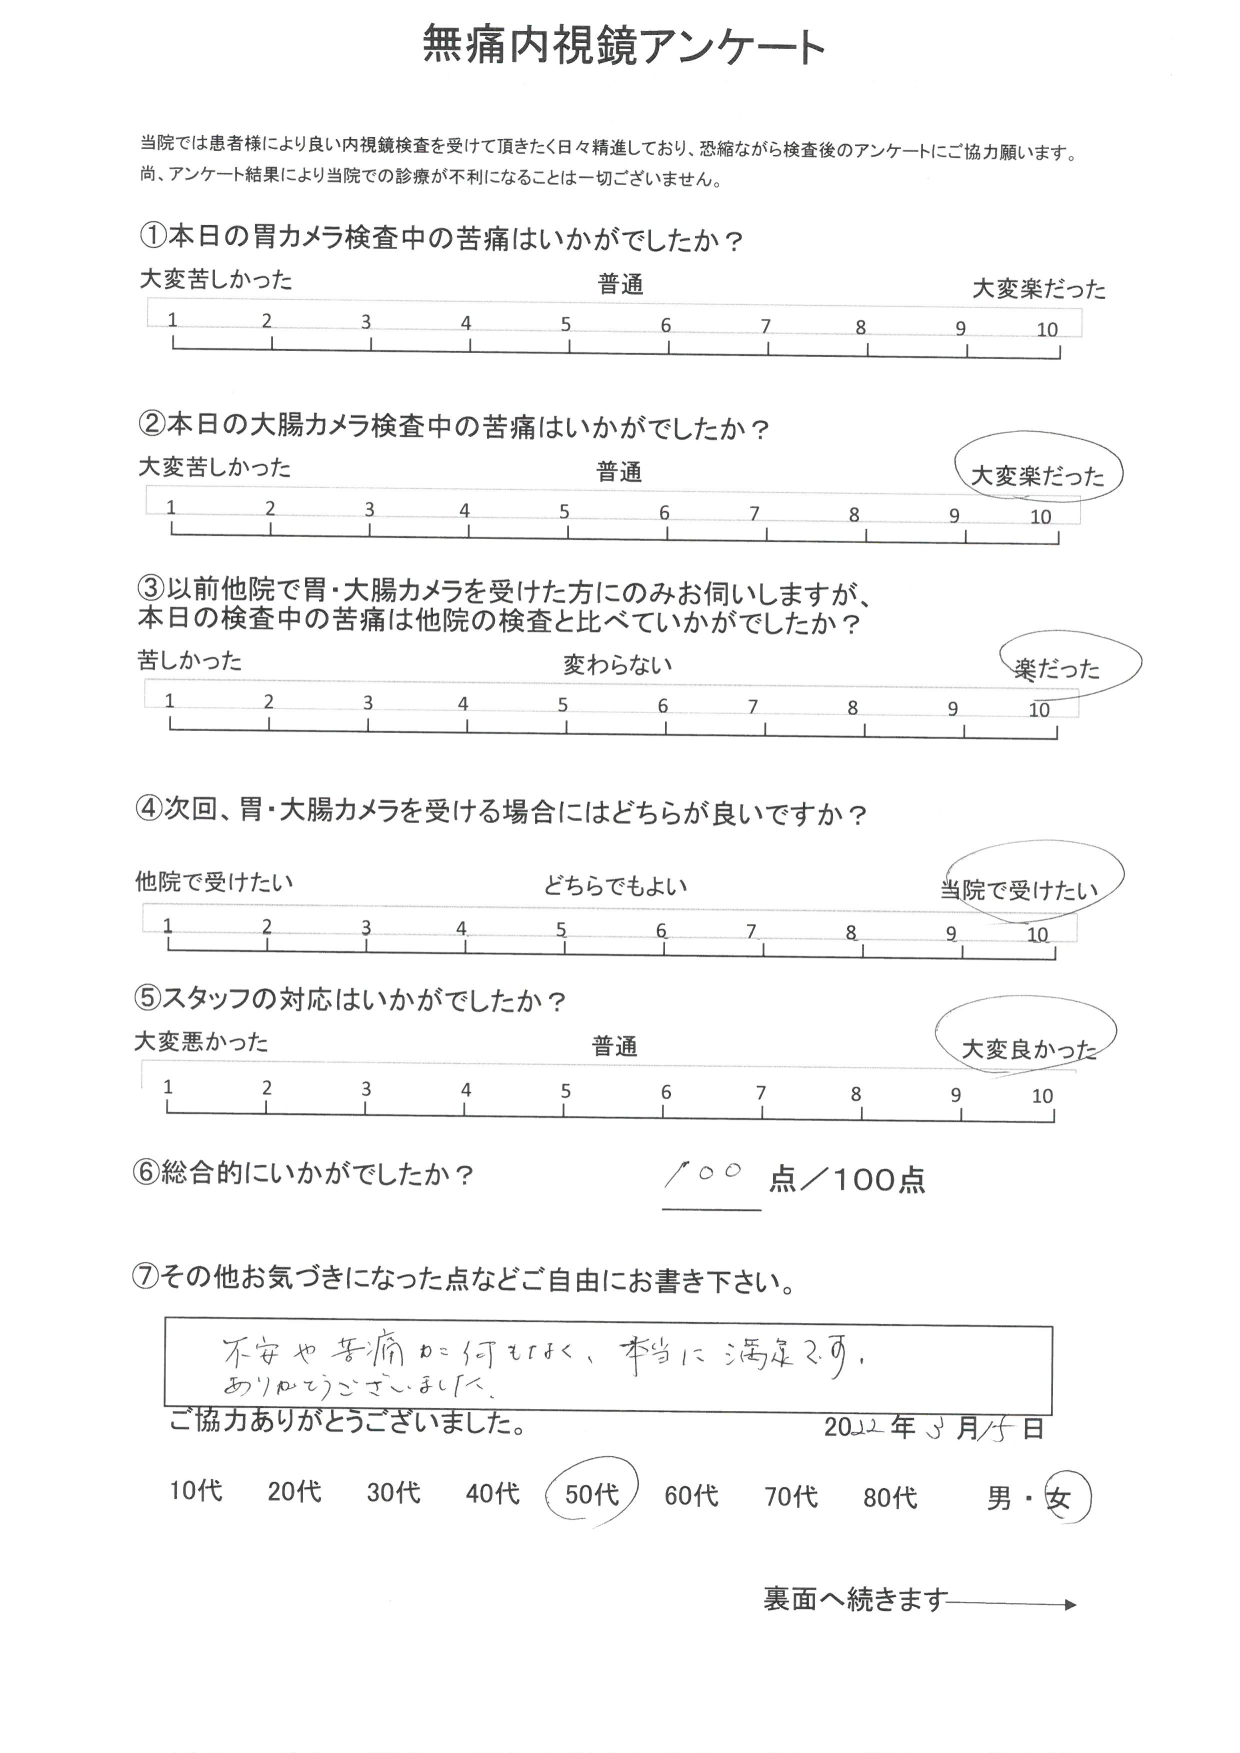 無痛内視鏡アンケート
当院では患者様により良い内視鏡検査を受けて頂きたく日々精進しており、恐縮ながら検査後のアンケートにご協力願います。
尚、アンケート結果により当院での診療が不利になることは一切ございません。
①本日の胃カメラ検査中の苦痛はいかがでしたか？
大変苦しかった 普通 大変楽だった
1 2 3 4 5 6 7 8 9 10
②本日の大腸カメラ検査中の苦痛はいかがでしたか？
大変苦しかった 普通 大変楽だった
1 2 3 4 5 6 7 8 9 10
③以前他院で胃・大腸カメラを受けた方にのみお伺いしますが、
本日の検査中の苦痛は他院の検査と比べていかがでしたか？
苦しかった 変わらない 楽だった
1 2 3 4 5 6 7 8 9 10
④次回、胃・大腸カメラを受ける場合にはどちらが良いですか？
他院で受けたい どちらでもよい 当院で受けたい
1 2 3 4 5 6 7 8 9 10
⑤スタッフの対応はいかがでしたか？
大変悪かった 普通 大変良かった
1 2 3 4 5 6 7 8 9 10
⑥総合的にいかがでしたか？ 100 点／100点
⑦その他お気づきになった点などご自由にお書き下さい。
不安や苦痛が何もなく、本当に満足です。
ありがとうございました。
ご協力ありがとうございました。 2022年3月15日
10代 20代 30代 40代 50代 60代 70代 80代 男・女
裏面へ続きます